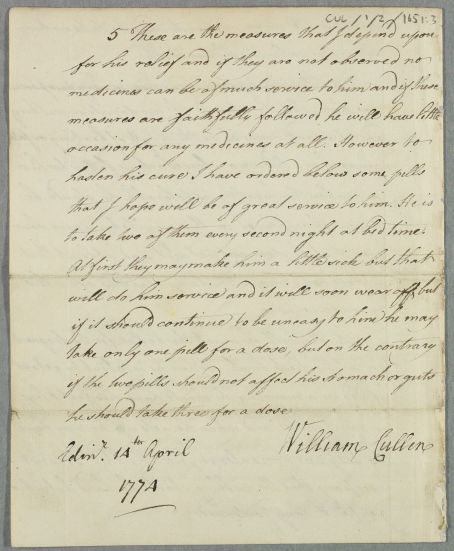 CUL/1/2/1651:3
5 These are the measures that I depend upon
for his relief and if they are not observed no
medicines can be of much service to him and if these
measures are faithfully followed he will have little
occasion for any medicines at all. However to
hasten his cure I have ordered below some pills
that I hope will be of great service to him. He is
to take two of them every second night at bed time.
At first they may make him a little sick but that
will do him service and it will soon wear off, but
if it should continue to be uneasy to him he may
take only one pill for a dose, but on the contrary
if the two pills should not affect his stomach or guts
he should take three for a dose
Edinr. 14th April
William Cullen
1774